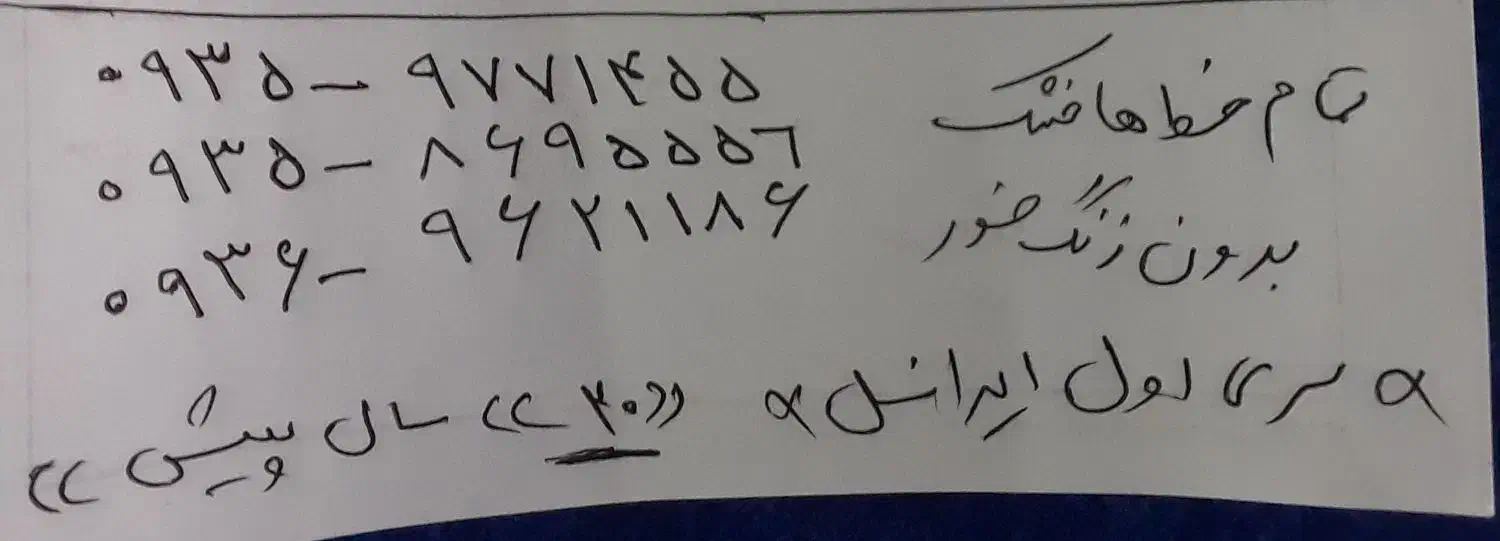 ۰۹۳۵ - ۹۷۷۱۴۵۵
۰۹۳۵ - ۸۶۹۵۵۵۶
۰۹۳۶ - ۹۶۲۱۱۸۶
تمام خط ها خشک
بدون زنگ خور
* سری اول ایرانسل * «۲۰» سال پیش »